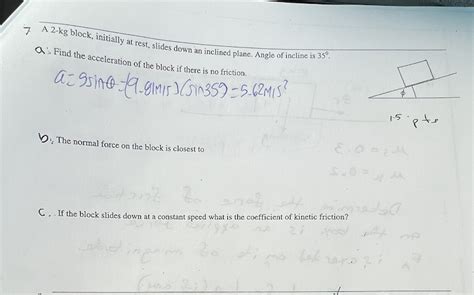 7 A 2-kg block, initially at rest, slides down an inclined plane. Angle of incline is 35⁰.
a. Find the acceleration of the block if there is no friction.
a = gsinθ = (9.81m/s)(sin35°) = 5.62m/s²
φ
1.5 pts
b. The normal force on the block is closest to
C. If the block slides down at a constant speed what is the coefficient of kinetic friction?